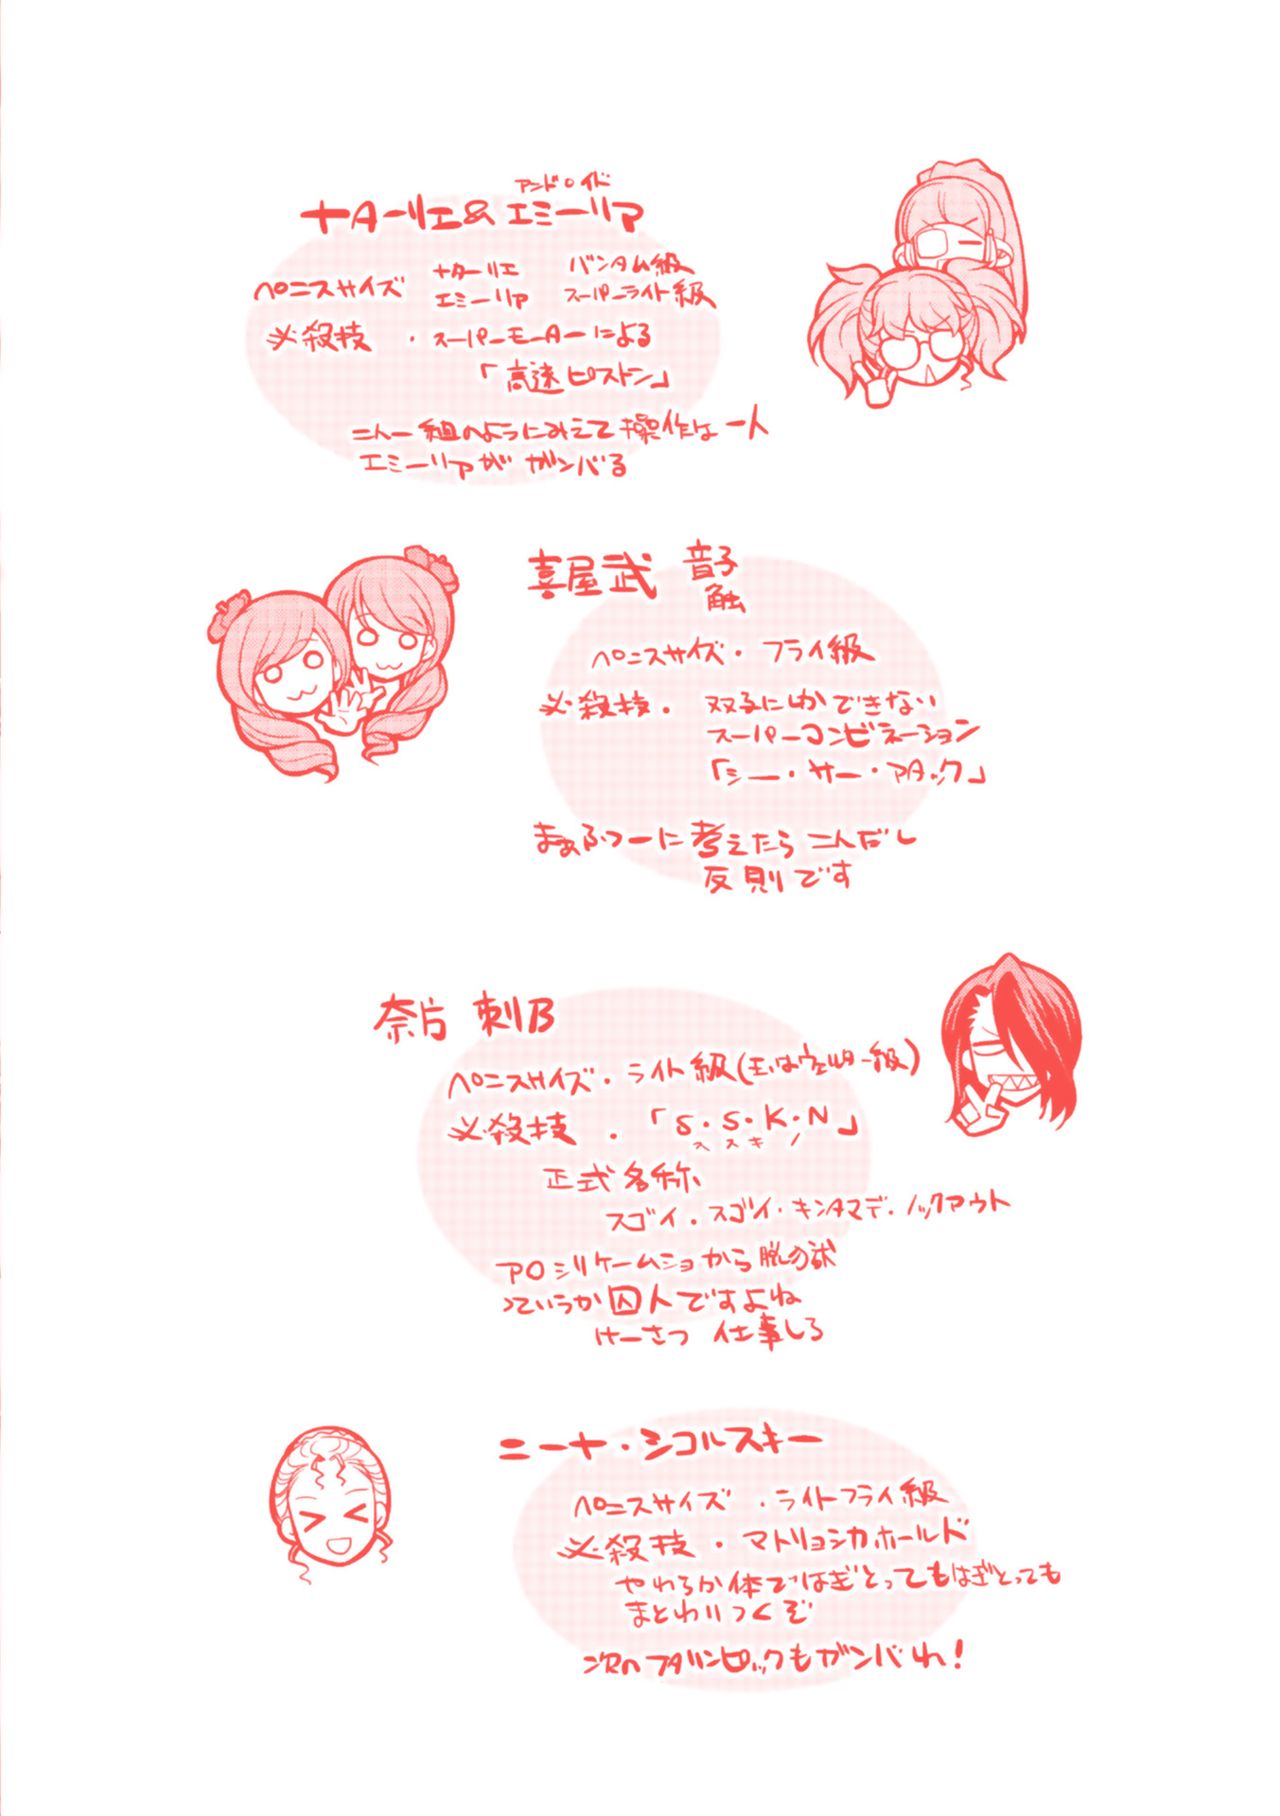 アンドロイド
ナターリエ&エミーリア
ペニスサイズ
ナターリエ バンタム級
エミーリア スーパーライト級
必殺技・スーパーモーターによる
「高速ピストン」
二人一組のようにみえて操作は一人
エミーリアが ガンバる
喜屋武 音子
触
ペニスサイズ・フライ級
必殺技・双子にしかできない
スーパーコンビネーション
「シー・サー・アタック」
まぁふつーに考えたら二人だし
反則です
奈片 刺B
ペニスサイズ・ライト級(玉はウェルター級)
必殺技・「S・S・K・N」
ススキノ
正式名称
スゴイ・スゴイ・キンタマデ・ノックアウト
アロシリケームショから脱獄
っていうか囚人ですよね
けーさつ 仕事しろ
ニーナ・シコルスキー
ペニスサイズ・ライトフライ級
必殺技・マトリョシカホールド
やわらか体ではぎとってもはぎとっても
まとわりつくぞ
次のフタリンピックもガンバれ!